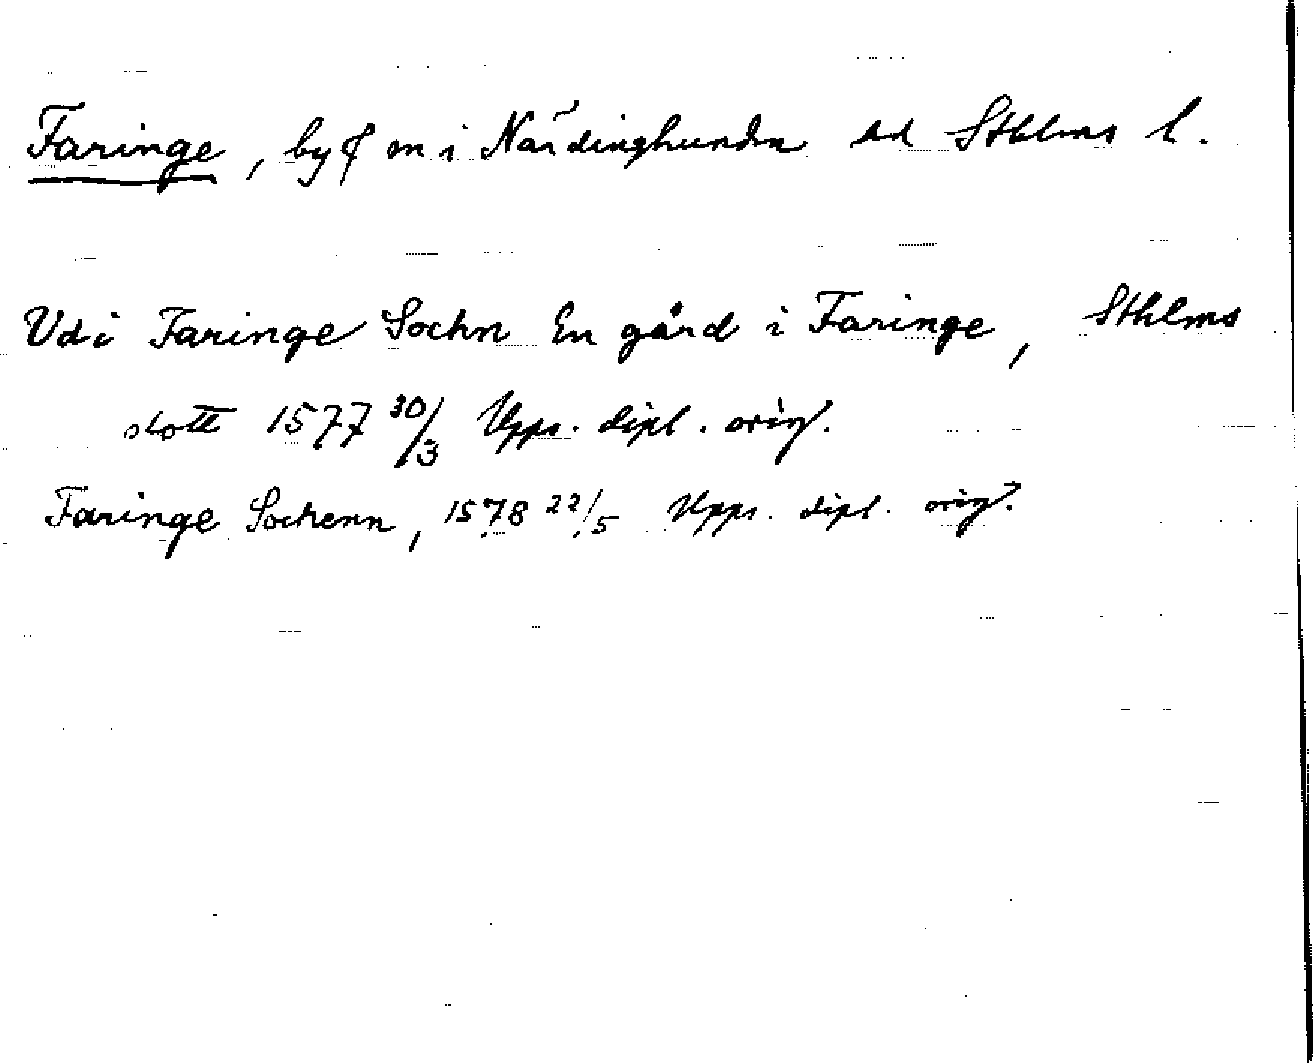 Faringe, by & sn i Närdinghundra hd Sthlms l.
Vdi Faringe Sochn En gård i Faringe, Sthlms
slott 1577 30/3 Upps. dipl. orig.
Faringe Sochenn, 1578 22/5 Upps. dipl. orig.